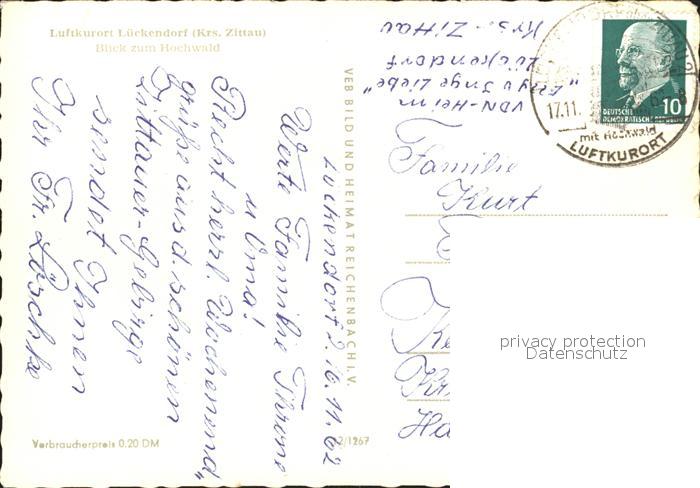 Luftkurort Lückendorf (Krs. Zittau)
Blick zum Hochwald
Lückendorf 2. 16.11.62
Werte Familie Throne
u Oma!
Recht herzl. Wochenend„
grüße aus d. schönen
Zittauer-Gebirge
sendet Ihnen
Ihr Fr. Löschke
Verbraucherpreis 0,20 DM
VEB BILD UND HEIMAT REICHENBACH i. V.
/1267
VDN-Heim
Inge Liebe"
Lückendorf
Krs.-Zittau
17.11.
mit Hochwald
LUFTKURORT
10
DEUTSCHE
DEMOKRATISCHE
Familie
Kurt
Kr
Ha
privacy protection
Datenschutz